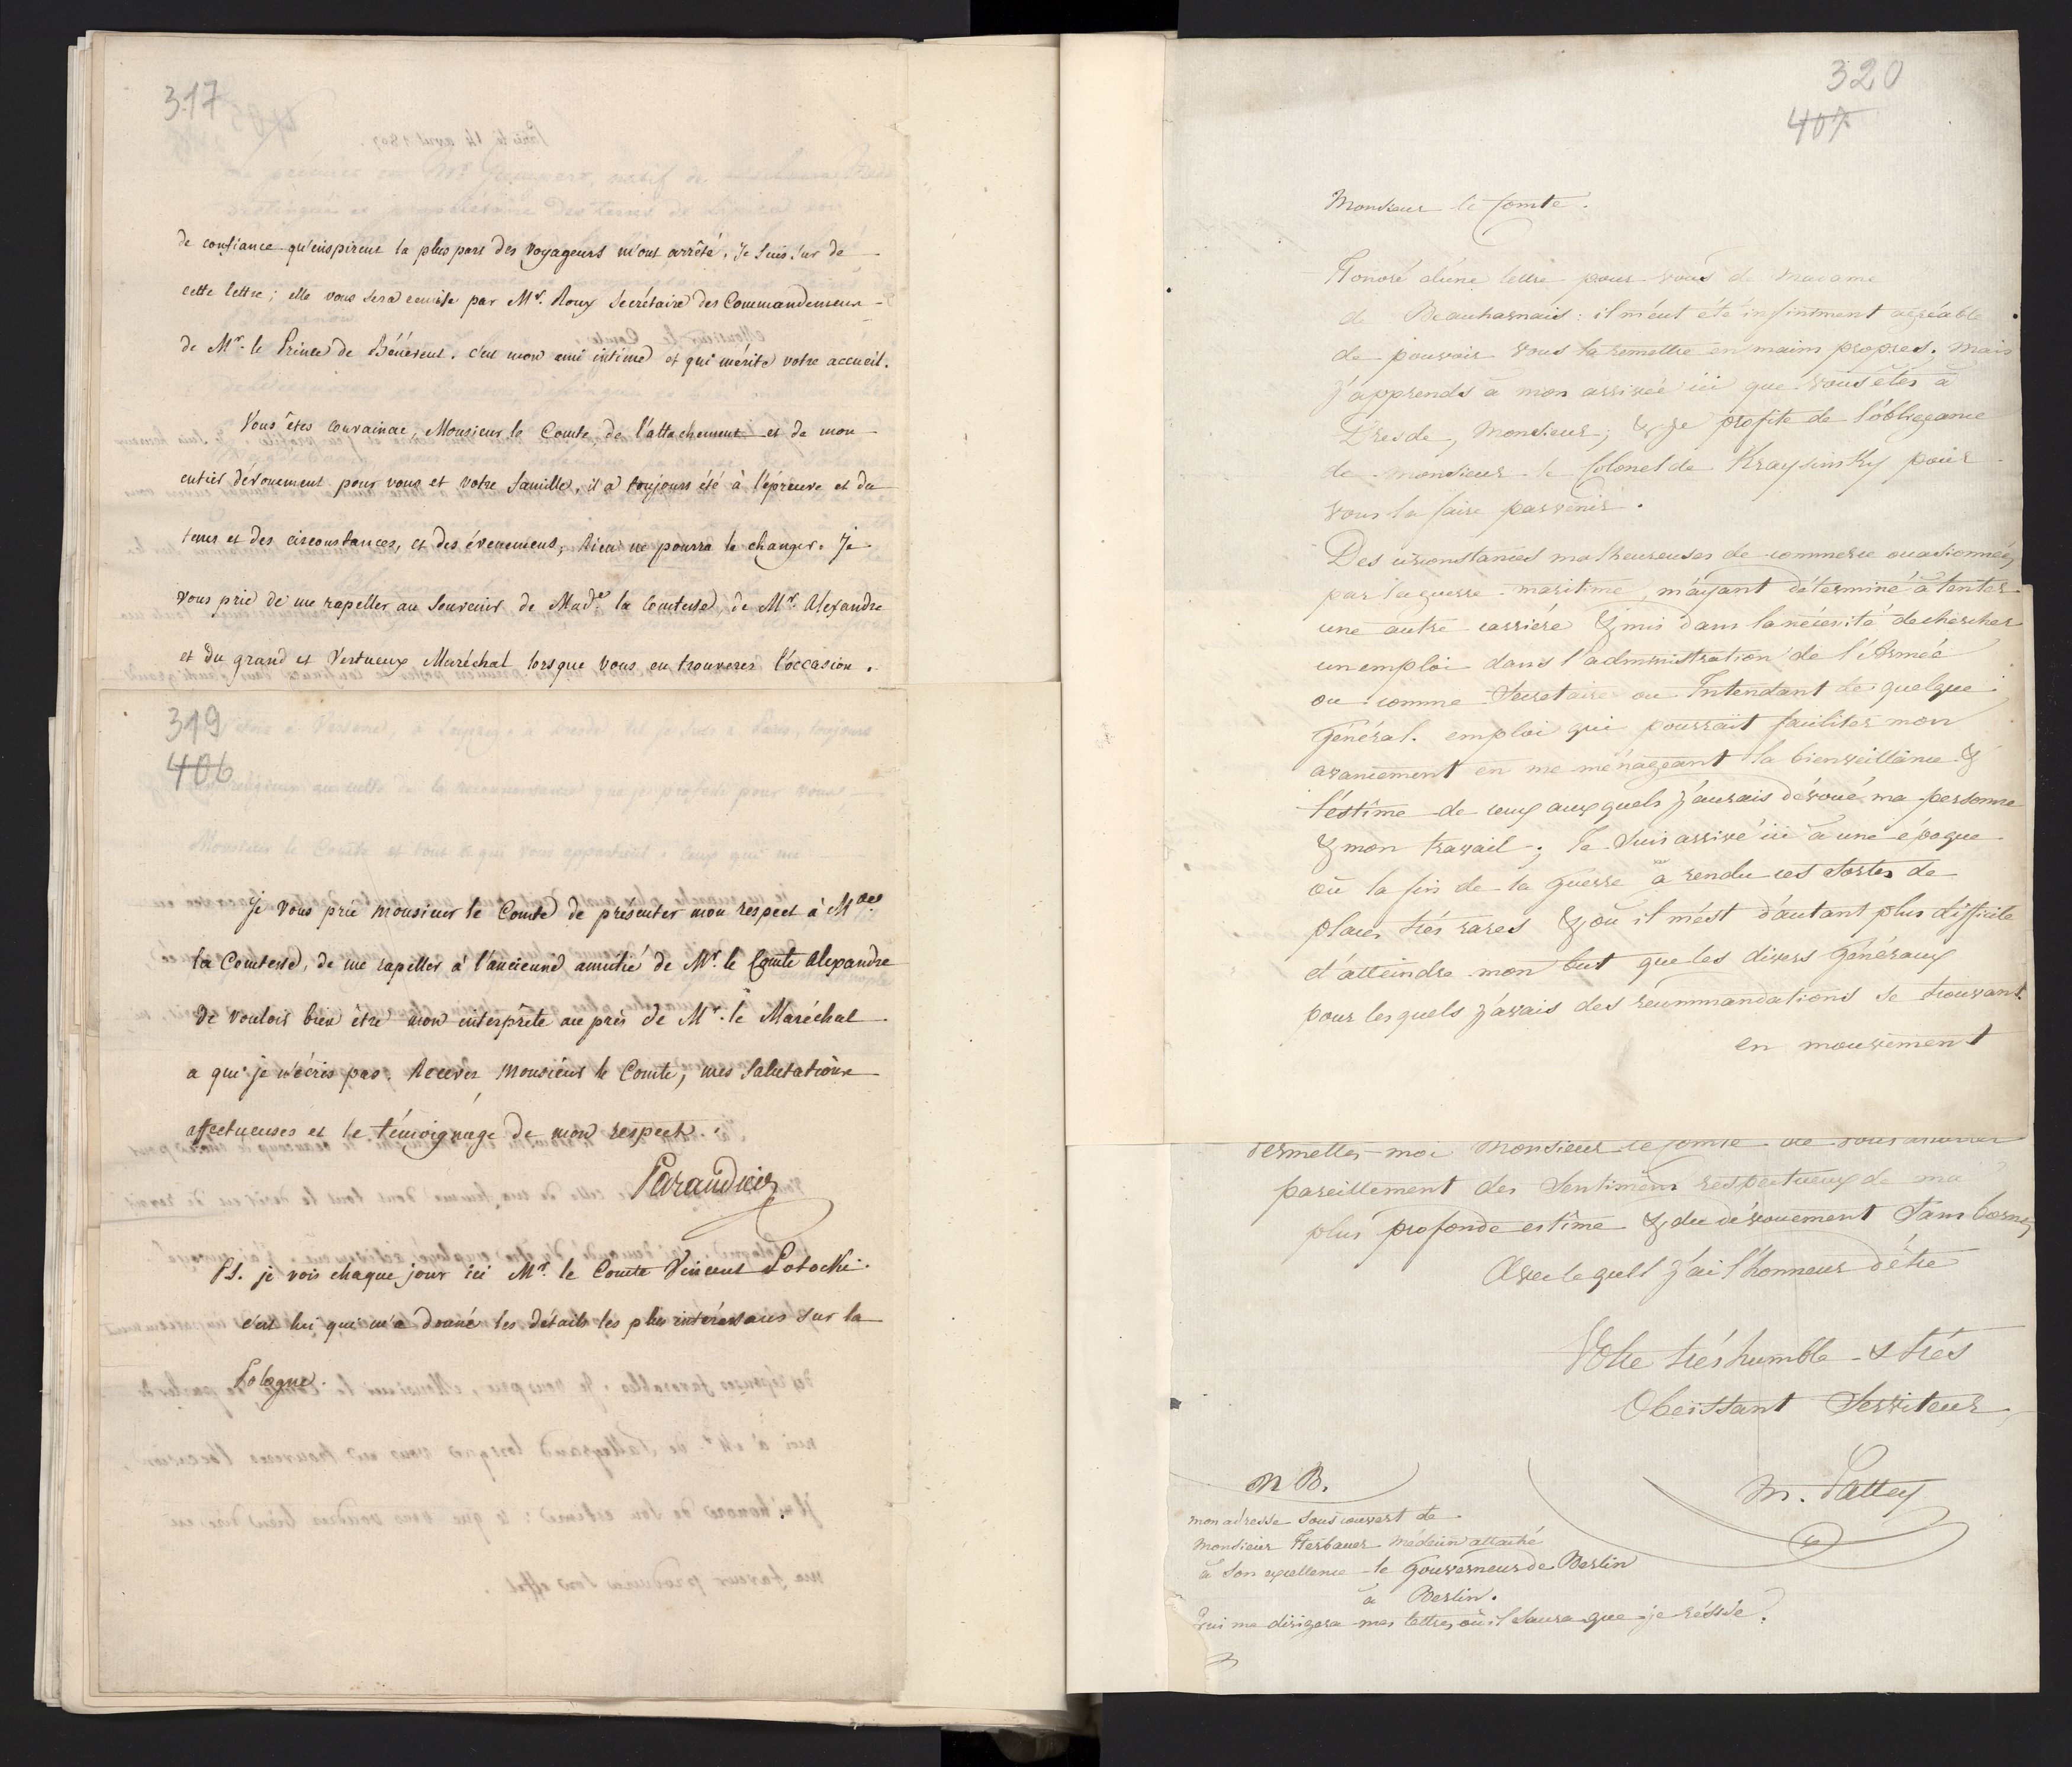 317
de confiance qu'inspirent la plus part des voyageurs m'ont arrêté. Je suis sur de
cette lettre; elle vous sera remise par Mr. Roux secrétaire des Commandemens
de Mr. le Prince de Bénévent. c'est mon ami intime et qui mérite votre accueil.
Vous êtes convaincu, Monsieur le Comte, de l'attachement et de mon
entier dévouement pour vous et votre famille, il a toujours été à l'épreuve et du
tems et des circonstances, et des évenemens, rien ne pourra le changer. Je
vous prie de me rapeller au souvenir de Made. la Comtesse, de Mr. Alexandre
et du grand et vertueux Maréchal lorsque vous en trouverez l'occasion.
319
406
Je vous prie monsieur le Comte de présenter mon respect à Mde
la Comtesse, de me rapeller à l'ancienne amitié de Mr. le Comte Alexandre
de vouloir bien être mon interprête au près de Mr. le Maréchal
a qui je n'écris pas. Recevez Monsieur le Comte, mes salutations
affectueuses et le témoignage de mon respect.
Parandier
PS. je vois chaque jour ici Mr. le Comte Vincent Potocki.
c'est lui qui m'a donné les détails les plus intéressans sur la
Pologne.
320
407
Monsieur le Comte.
Honoré d'une lettre pour vous de Madame
de Beauharnais: il m'eut été infiniment agréable
de pouvoir vous la remettre en mains propres. Mais
j'apprends à mon arrivée ici que vous êtes à
Dresde, Monsieur; & je profite de l'obligeance
de monsieur le Colonel de Kraysinsky pour
vous la faire parvenir.
Des circonstances malheureuses de commerce occasionnées
par la guerre maritime, m'ayant déterminé à tenter
une autre carriére & mis dans la nécessité de chercher
un emploi dans l'administration de l'Armée
ou comme Secretaire ou Intendant de quelque
Général. emploi qui pourrait faciliter mon
avancement en me ménageant la bienveillance &
l'estime de ceux auxquels j'aurais dévoué ma personne
& mon travail; Je suis arrivé ici à une époque
où la fin de la guerre a rendu ces sortes de
places très rares & où il m'est d'autant plus difficile
d'atteindre mon but que les divers Généraux
pour lesquels j'avais des recommandations se trouvant
en mouvement
Permettez-moi Monsieur le Comte de vous assurer
pareillement des Sentimens respectueux de ma
plus profonde estime & du dévouement sans bornes
Avec lequel j'ai l'honneur d'être
Votre trés humble & trés
Obéissant Serviteur
M. Pattey
NB.
mon adresse sous couvert de
Monsieur Herbauer Médecin attaché
à Son excellence le Gouverneur de Berlin
à Berlin.
qui me dirigera mes lettres où il saura que je réside.